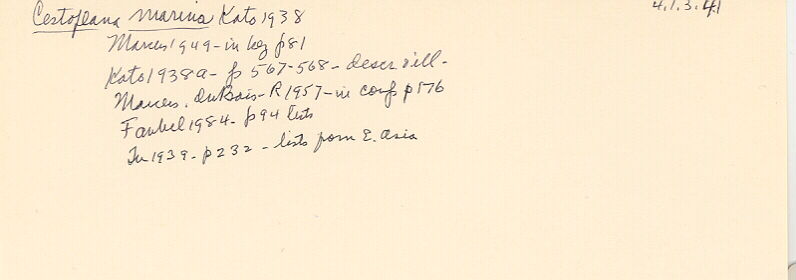 Cestoplana marina Kato 1938
4.1.3.41
Marcus 1949 - in key p81
Kato 1938a - p 567-568 - descr & ill.
Marcus, duBois-R 1957 - in conf p 176
Faubel 1984 - p 94 lists
Tu 1939 - p 232 - lists from E. Asia